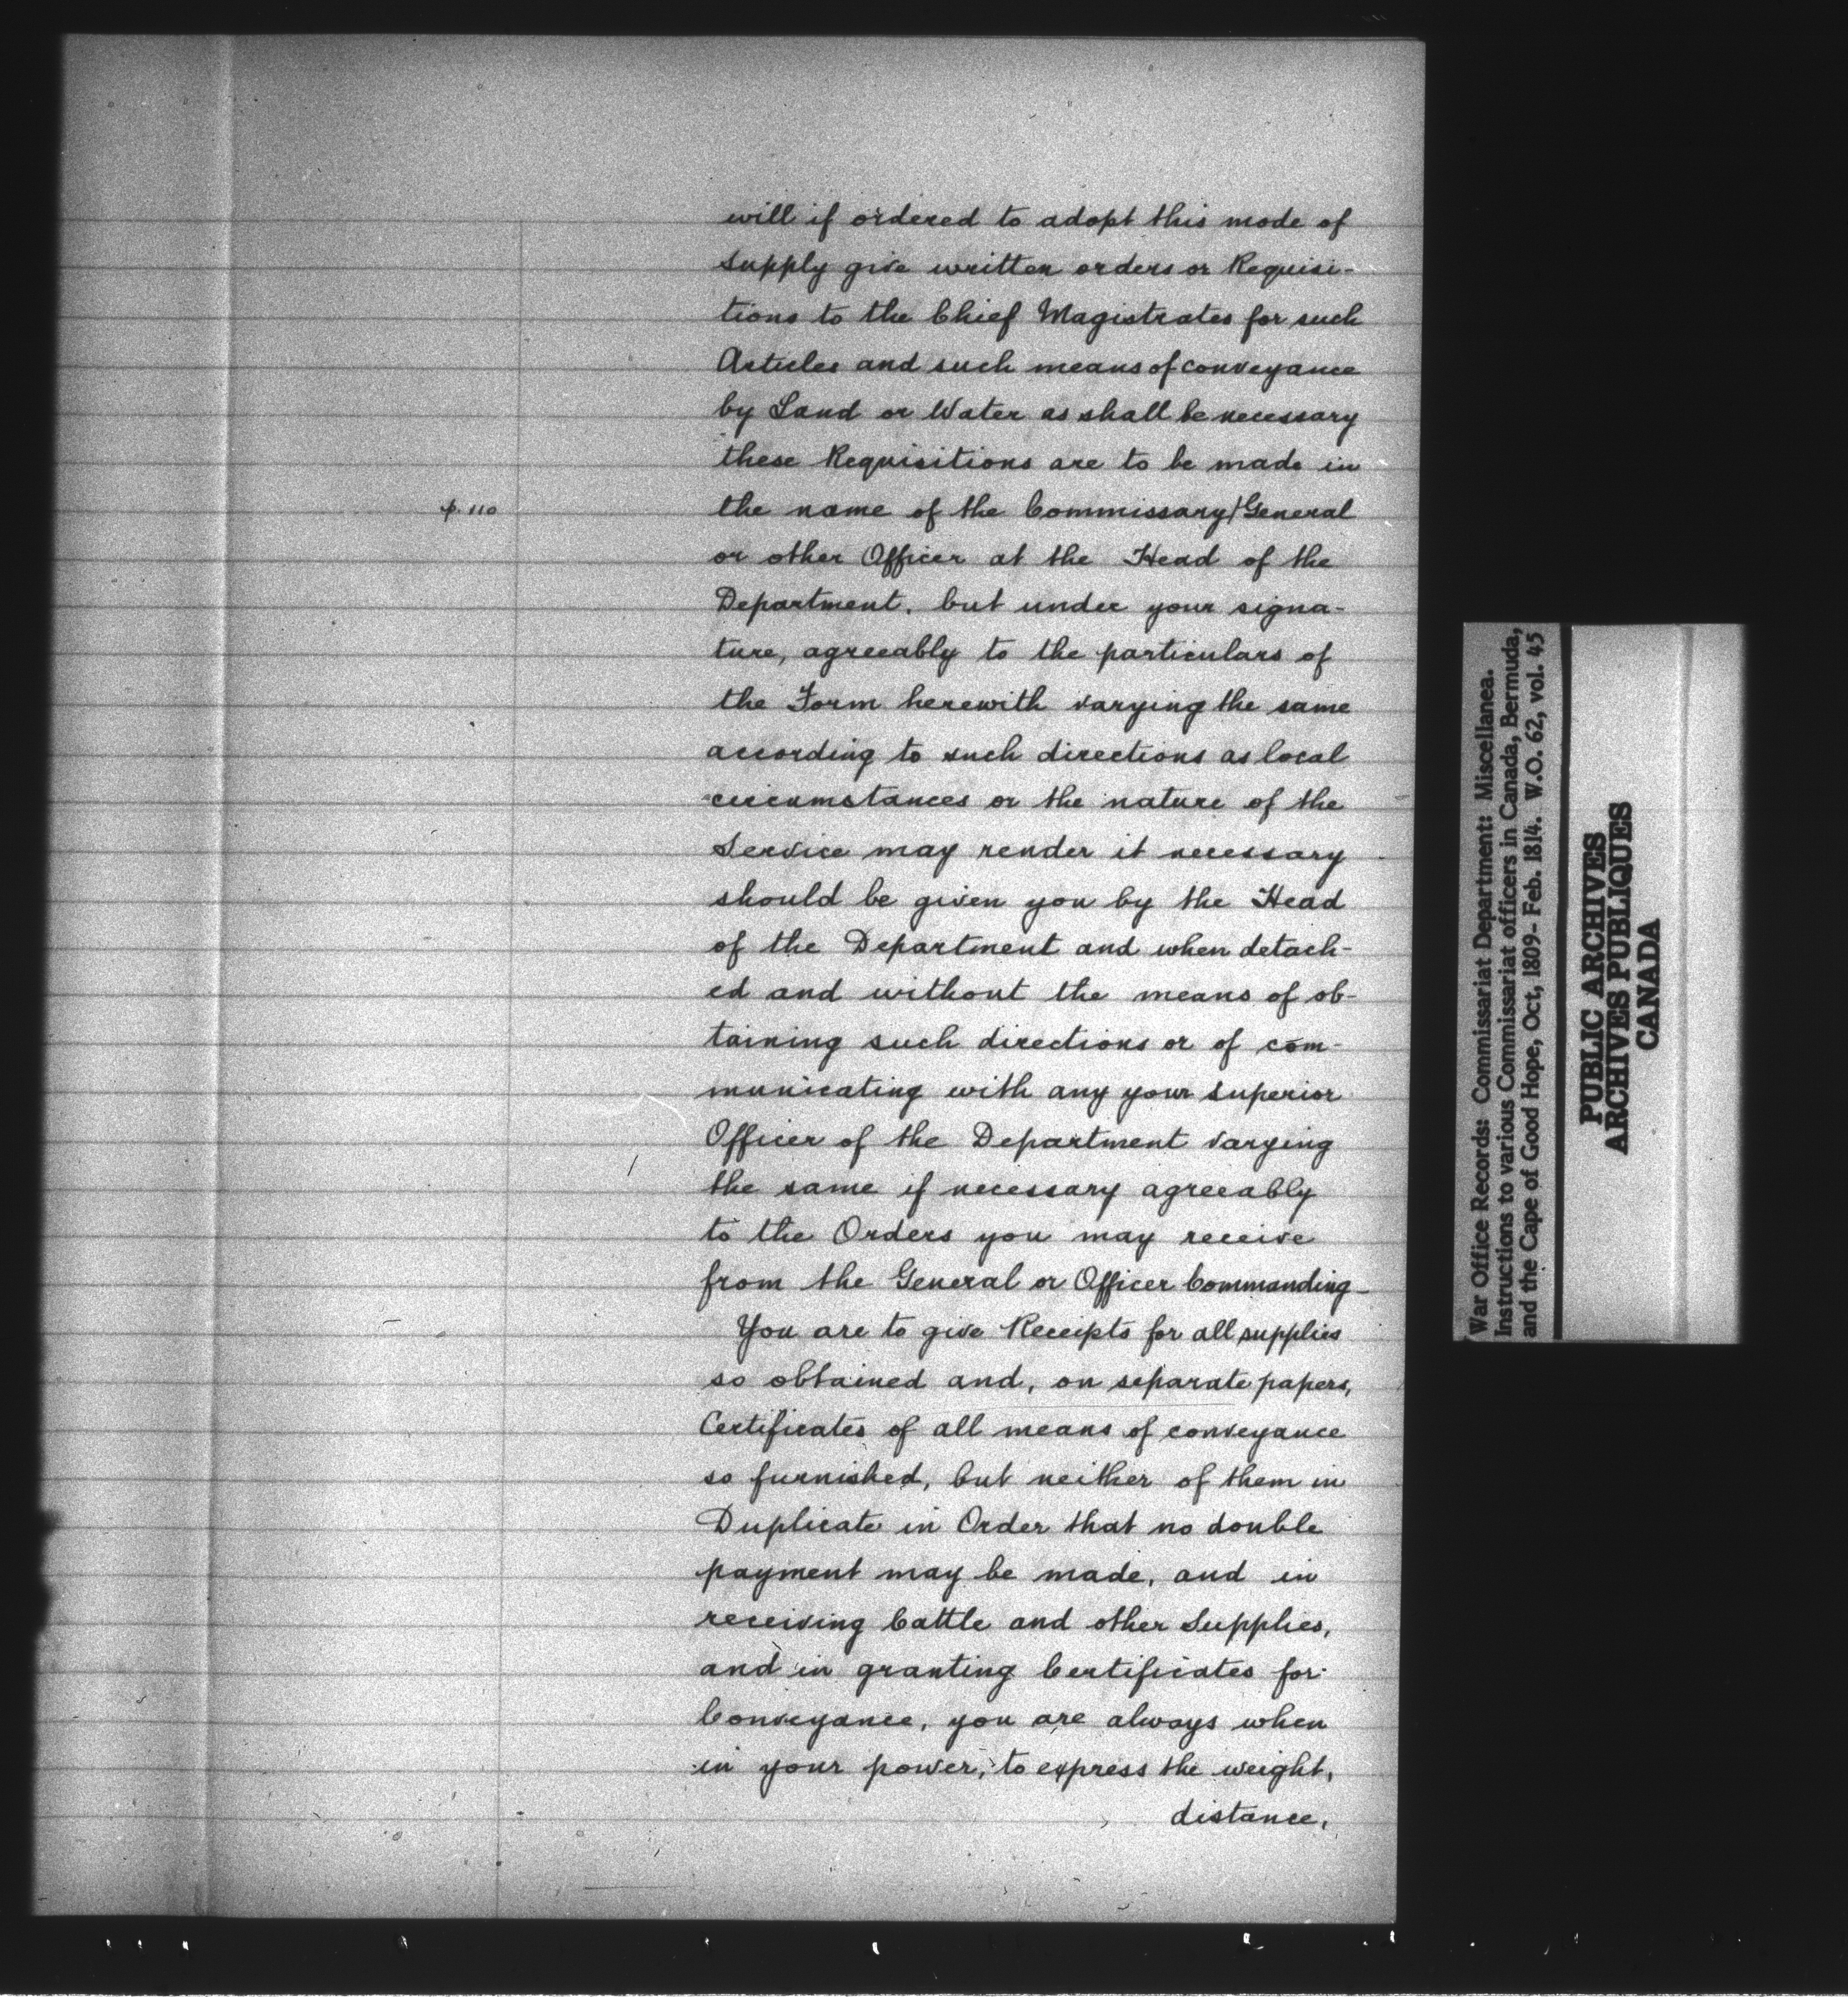 will if ordered to adopt this mode of
supply give written orders or Requisi-
tions to the Chief Magistrates for such
Articles and such means of conveyance
by Land or Water as shall be necessary
these Requisitions are to be made in
p. 110
the name of the Commissary/General
or other Officer at the Head of the
Department, but under your signa-
ture, agreeably to the particulars of
the Form herewith varying the same
according to such directions as local
circumstances or the nature of the
Service may render it necessary
should be given you by the Head
of the Department and when detach-
ed and without the means of ob-
taining such directions or of com-
municating with any your superior
Officer of the Department varying
the same if necessary agreeably
to the Orders you may receive
from the General or Officer Commanding-
You are to give Receipts for all supplies
so obtained and, on separate papers,
Certificates of all means of conveyance
so furnished, but neither of them in
Duplicate in Order that no double
payment may be made, and in
receiving Cattle and other Supplies,
and in granting Certificates for
Conveyance, you are always when
in your power, to express the weight,
distance,
War Office Records: Commissariat Department: Miscellanea.
Instructions to various Commissariat officers in Canada, Bermuda,
and the Cape of Good Hope, Oct, 1809- Feb. 1814. W.O. 62, vol. 45
PUBLIC ARCHIVES
ARCHIVES PUBLIQUES
CANADA